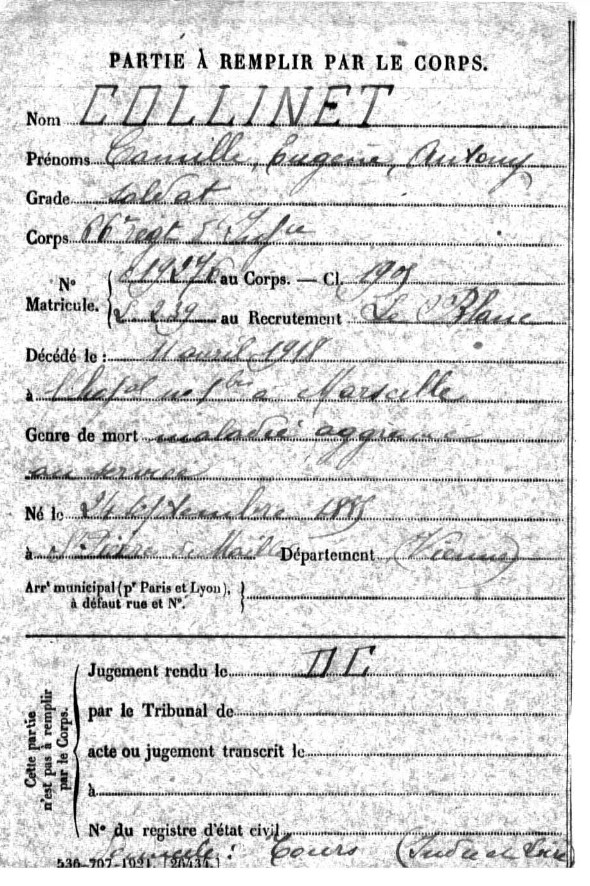 PARTIE À REMPLIR PAR LE CORPS.
Nom COLLINET
Prénoms Camille, Eugène, Antony
Grade soldat
Corps 66e regt d'Infie
N° Matricule. 19276 au Corps. — Cl. 1905
239 au Recrutement Le Blanc
Décédé le : 11 avril 1918
à l'hopal no 1 bis à Marseille
Genre de mort maladie aggravée
au service
Né le 24 septembre 1885
à St Pierre de Maillé Département (Vienne)
Arrt municipal (pr Paris et Lyon),
à défaut rue et N°.
Cette partie n'est pas à remplir par le Corps.
Jugement rendu le DC
par le Tribunal de
acte ou jugement transcrit le
à
N° du registre d'état civil
Domicile : Tours (Indre et Loire)
536-707-1921. [26434.]